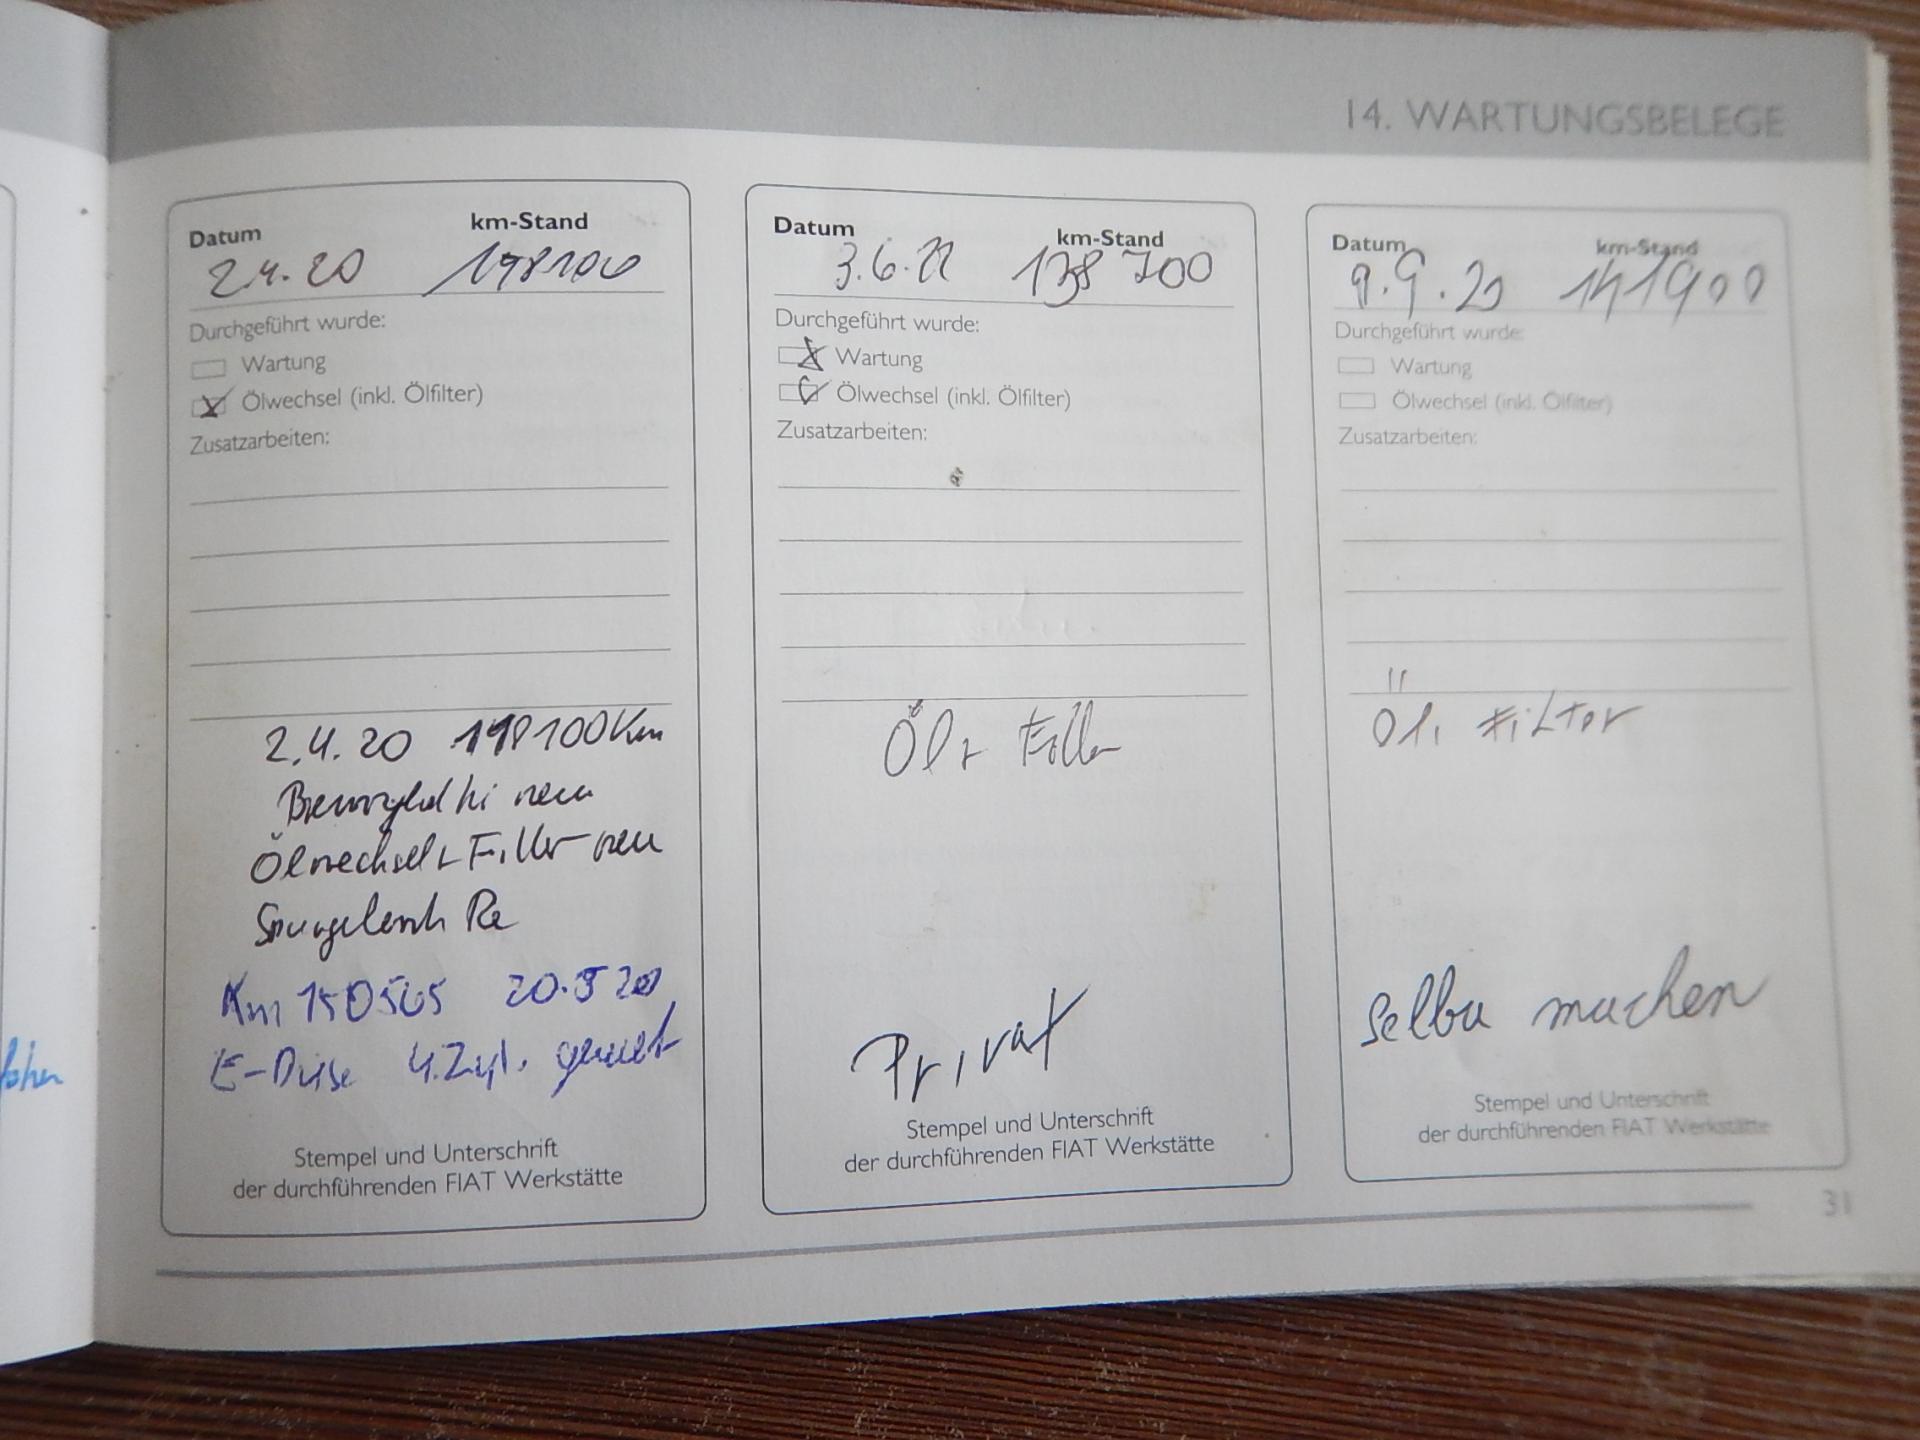 14. WARTUNGSBELEGE
Datum km-Stand
2.4.20
Durchgeführt wurde:
Wartung
Ölwechsel (inkl. Ölfilter)
Zusatzarbeiten:
2.4.20 100Km
hi neu
Ölwechsel + Filter neu
Re
Km 20.5 20
E-Düse 4.Zyl.
Stempel und Unterschrift
der durchführenden FIAT Werkstätte
Datum km-Stand
3.6. 138 700
Durchgeführt wurde:
Wartung
Ölwechsel (inkl. Ölfilter)
Zusatzarbeiten:
Öl + Filter
Privat
Stempel und Unterschrift
der durchführenden FIAT Werkstätte
Datum km-Stand
9.9. 141900
Durchgeführt wurde:
Wartung
Ölwechsel (inkl. Ölfilter)
Zusatzarbeiten:
Öl, Filter
machen
Stempel und Unterschrift
der durchführenden FIAT Werkstätte
31